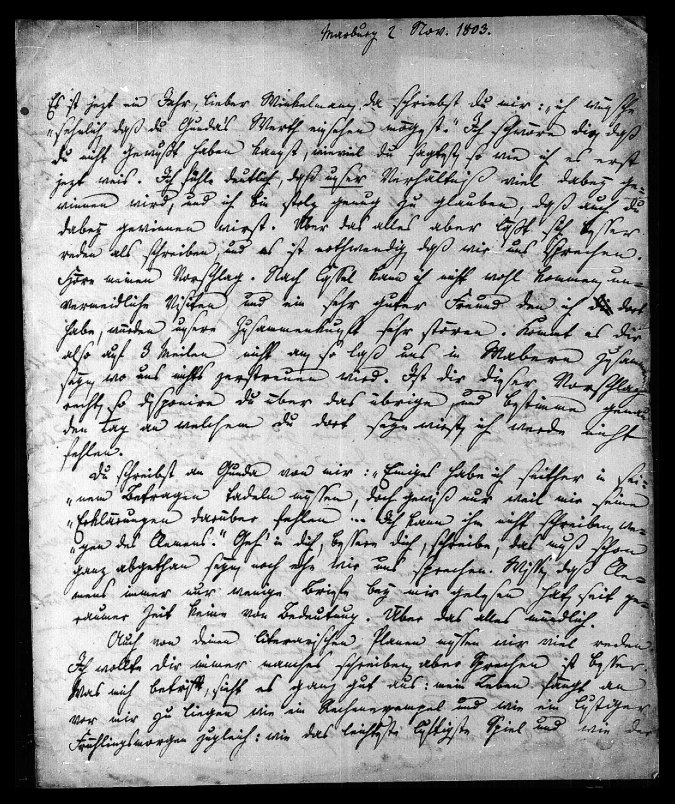 Marburg 2 Nov. 1803.
Es ist jezt ein Jahr, lieber Winkelmann, da schriebst du mir: „ich wünsche
„sehnlich daß du Gundas Werth einsehen mögest." Ich schwöre dir, daß
du nicht gewußt haben kanst, wieviel du sagtest, so wie ich es erst
jezt weis. Ich fühle deutlich, daß unser Verhältniß viel dabey ge-
winnen wird, und ich bin stolz genug zu glauben, daß auch du
dabey gewinnen wirst. Über das alles aber läßt sich besser
reden als schreiben, und es ist nothwendig daß wir uns sprechen.
Höre meinen Vorschlag. Nach Cassel kann ich nicht wohl kommen, un-
vermeidliche Visiten und ein sehr guter Freund den ich dort
habe, würden unsere Zusammenkunft sehr stören. Kömt es dir
also auf 3 Meilen nicht an, so laß uns in Wabern zusamen
seyn, wo uns nichts zerstreuen wird. Ist dir dieser Vorschlag
recht, so disponire du über das übrige und bestimme genau
den Tag an welchem du dort seyn wirst, ich werde nicht
fehlen.
Du schreibst an Gunda von mir: „Einiges habe ich seither in sei-
„nem Betragen tadeln müssen, doch gewiß nur weil mir seine
„Erklärungen darüber fehlen ... Ich kann ihm nicht schreiben we-
„gen des Clemens." Geh in dich, bessere dich, schreibe, das muß schon
ganz abgethan seyn, noch ehe wir uns sprechen. Wisse, daß Cle-
mens immer nur wenige Briefe bey mir gelesen hat, seit ge-
raumer Zeit keine von Bedeutung. Über das alles mündlich.
Auch von deinen literarischen Planen müssen wir viel reden
Ich wollte dir immer manches schreiben, aber Sprechen ist besser.
Was mich betrifft, sieht es ganz gut aus: mein Leben fängt an
vor mir zu liegen wie ein Rechenexempel und wie ein lustiger
Frühlingsmorgen zugleich: wie das leichteste luftigste Spiel und wie der